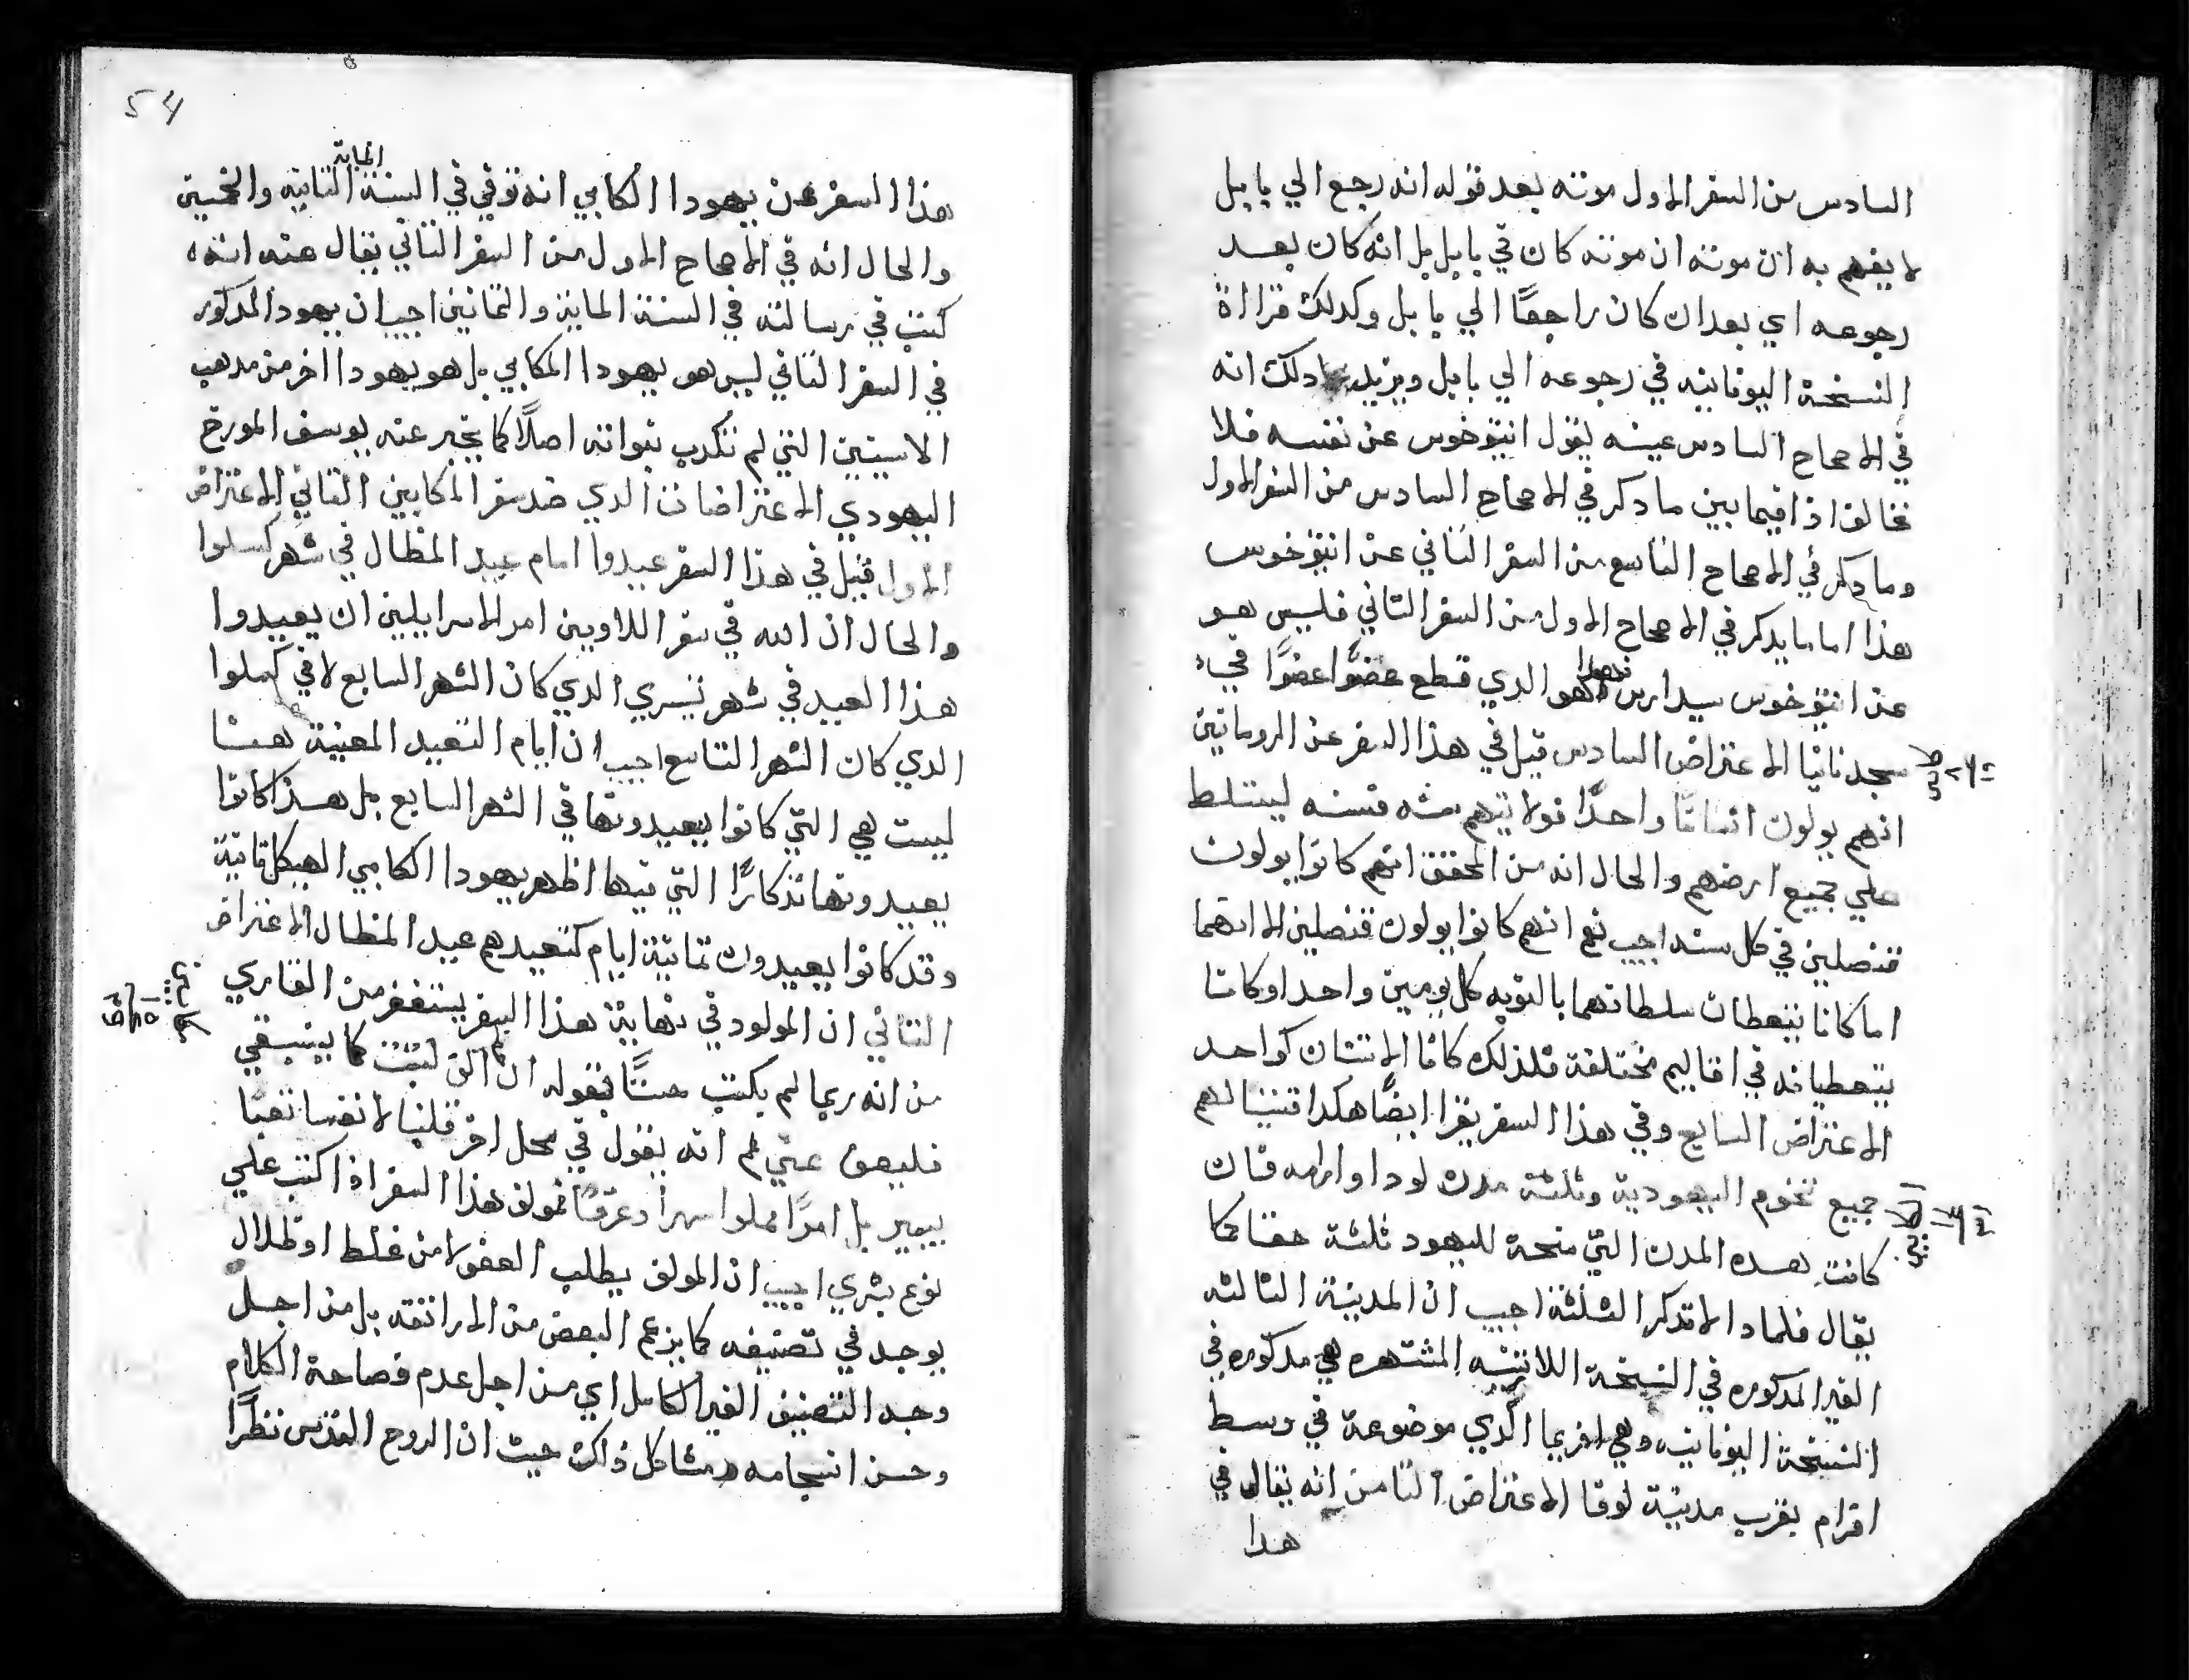 السادس من السفر الاول موته بعد قوله انه رجع الي بابل
لا يفهم به ان موته ان موته كان في بابل بل انه كان بعد
رجوعه اي بعد ان كان راجعًا الي بابل وكدلك قرااة
النسخة اليونانيه في رجوعه الي بابل ويزيد دلك انه
في الاصحاح السادس عينه يقول انتيوخوس عن نفسه فلا
تخالف اذا فيما بين ما دكر في الاصحاح السادس من السفر الاول
وما دكر في الاصحاح التاسع من السفر الثاني عن انتيوخوس
هذا اما ما يدكر في الاصحاح الاول من السفر التاني فليس هو
عن انتيوخوس سيدارس فهدا هو الدي قطع عضوًا عضوًا في
سجد ثانيًا الاعتراض السادس قيل في هذا السفر عن الرومانيين
انهم يولون انسانًا واحدًا ولايتهم سنه فسنه ليتسلط
علي جميع ارضهم والحال انه من المحقق انهم كانوا يولون
قنصلين في كل سنه اجيب نعم انهم كانوا يولون قنصلين الا انهما
اما كانا يتعطيان سلطانهما بالنوبه كل يومين واحد او كانا
يتعطيانه في اقاليم مختلفة فلذلك كانا الاتنان كواحد
الاعتراض السابع وفي هذا السفر يقرا ايضًا هكدا
جميع تخوم اليهودية وثلثة مدن لودا وارامه فان
كانت هده المدن التي منحة لليهود ثلثة حقًا كما
يقال فلمادا لا تدكر الثلثة اجيب ان المدينة الثالثه
الغير المدكوره في النسخة اللاتينيه المشتهره هي مدكوره في
النسخة اليونانيه وهي افريما الدي موضوعة في وسط
افرام بقرب مدينة لوقا الاعتراض الثامن انه يقال في
هدا
54
هذا السفر عن يهودا المكابي انه توفي في السنة الماية الثانيه والخمسين
والحال انه في الاصحاح الاول من السفر الثاني يقال عنه انه
كتب في رسالته في السنة الماية والثمانين اجيب ان يهودا المدكور
في السفر الثاني ليس هو يهودا المكابي بل هو يهودا اخر من مدهب
الاسينيين التي لم تكدب نبواته اصلًا كما يخبر عنه يوسف المورخ
اليهودي الاعتراضات الدي ضد سفر المكابيين الثاني الاعتراض
الاول قيل في هذا السفر عيدوا امام عيد المظال في شهر كسلوا
والحال ان الله في سفر اللاويين امر الاسراييلين ان يعيدوا
هذا العيد في شهر تيسري الدي كان الشهر السابع لا في كسلوا
الدي كان الشهر التاسع اجيب ان ايام التعييد المعينة هنا
ليست هي التي كانوا يعيدونها في الشهر السابع بل هذا كانوا
يعيدونها تذكارًا التي فيها اظهر يهودا المكابي الهيكل ثانية
وقد كانوا يعيدون ثمانية ايام كتعيدهم عيد المظال الاعتراض
الثاني ان المولود في نهاية هذا السفر يستغفر من القاري
من انه ربما لم يكتب حسنًا بقوله ان كتبت كما ينبغي
فليعف عني ثم انه يقول في محل اخر قلنا لانفسنا تعبًا
بيسير بل امرًا مملوا سهرًا وعرقًا فمولف هذا السفر اذا كتب علي
نوع بشري اجيب ان المولف يطلب العفو لا من غلط او ظلال
يوجد في تصنيفه كما يزعم البعض من الاراتقه بل من اجل
وجد التصنيف الغير الكامل اي من اجل عدم فصاحة الكلام
وحسن انسجامه ومشاكل ذاك حيث ان الروح القدس نظرًا